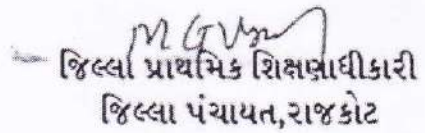 જિલ્લા પ્રાથમિક શિક્ષણાધીકારી
જિલ્લા પંચાયત,રાજકોટ